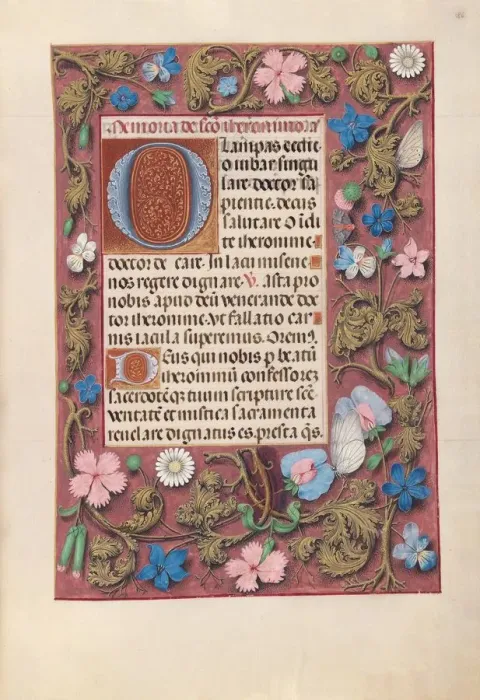 Memoria de sco iheronimo a
O Lampas ecclie
o iubar singu
lare doctor sa
pientie. decus
salutare O icli
te iheronime
doctor de care. In lacu misene
nos regere dignare. V. asta pro
nobis apud deū venerande doc
tor iheronime. Vt fallatio car
nis iacula superemus. Orem9.
DEus qui nobis p beatū
iheronimū confessorez
sacerdotēqz tuum scripture scē
veritatē et mistica sacramenta
reuelare dignatus es. presta q̄s.